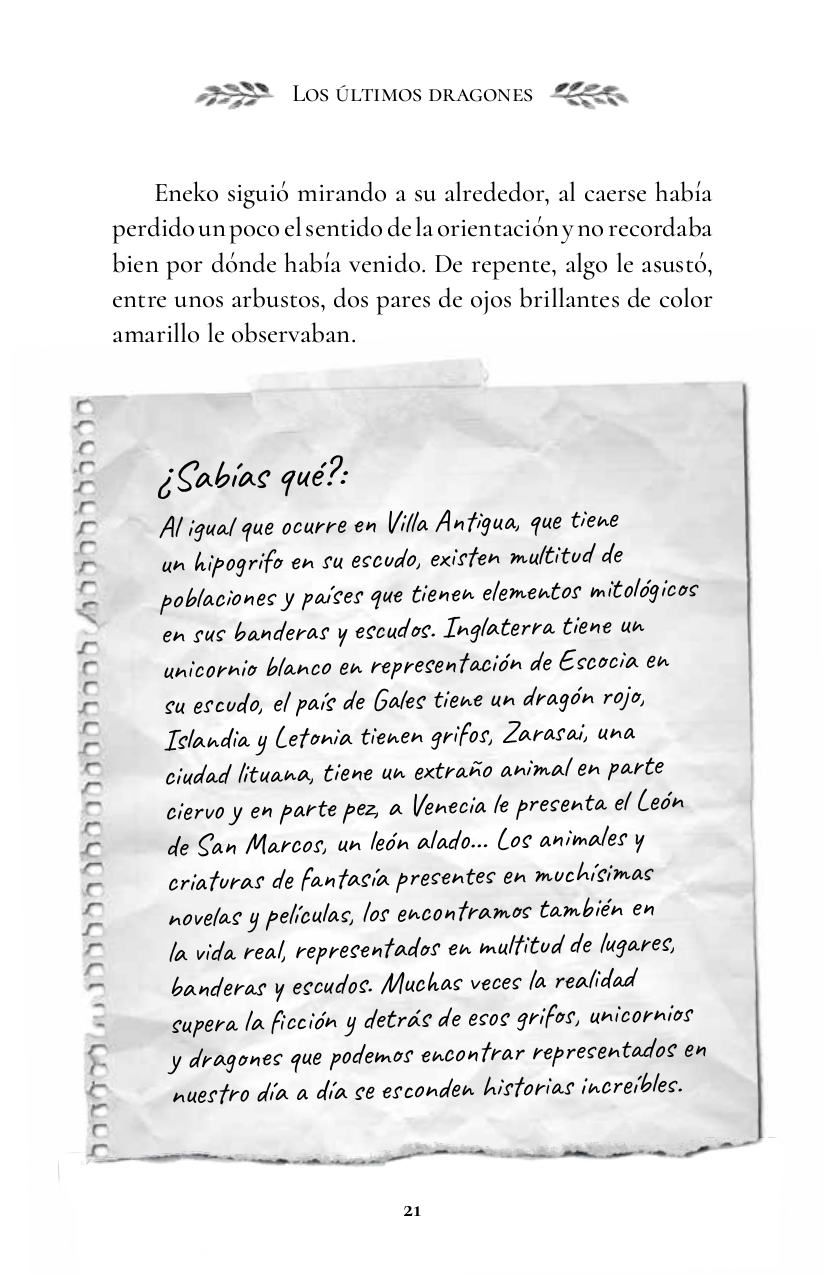 Los últimos dragones
Eneko siguió mirando a su alrededor, al caerse había
perdido un poco el sentido de la orientación y no recordaba
bien por dónde había venido. De repente, algo le asustó,
entre unos arbustos, dos pares de ojos brillantes de color
amarillo le observaban.
¿Sabías qué?:
Al igual que ocurre en Villa Antigua, que tiene
un hipogrifo en su escudo, existen multitud de
poblaciones y países que tienen elementos mitológicos
en sus banderas y escudos. Inglaterra tiene un
unicornio blanco en representación de Escocia en
su escudo, el país de Gales tiene un dragón rojo,
Islandia y Letonia tienen grifos, Zarasai, una
ciudad lituana, tiene un extraño animal en parte
ciervo y en parte pez, a Venecia le presenta el León
de San Marcos, un león alado... Los animales y
criaturas de fantasía presentes en muchísimas
novelas y películas, los encontramos también en
la vida real, representados en multitud de lugares,
banderas y escudos. Muchas veces la realidad
supera la ficción y detrás de esos grifos, unicornios
y dragones que podemos encontrar representados en
nuestro día a día se esconden historias increíbles.
21